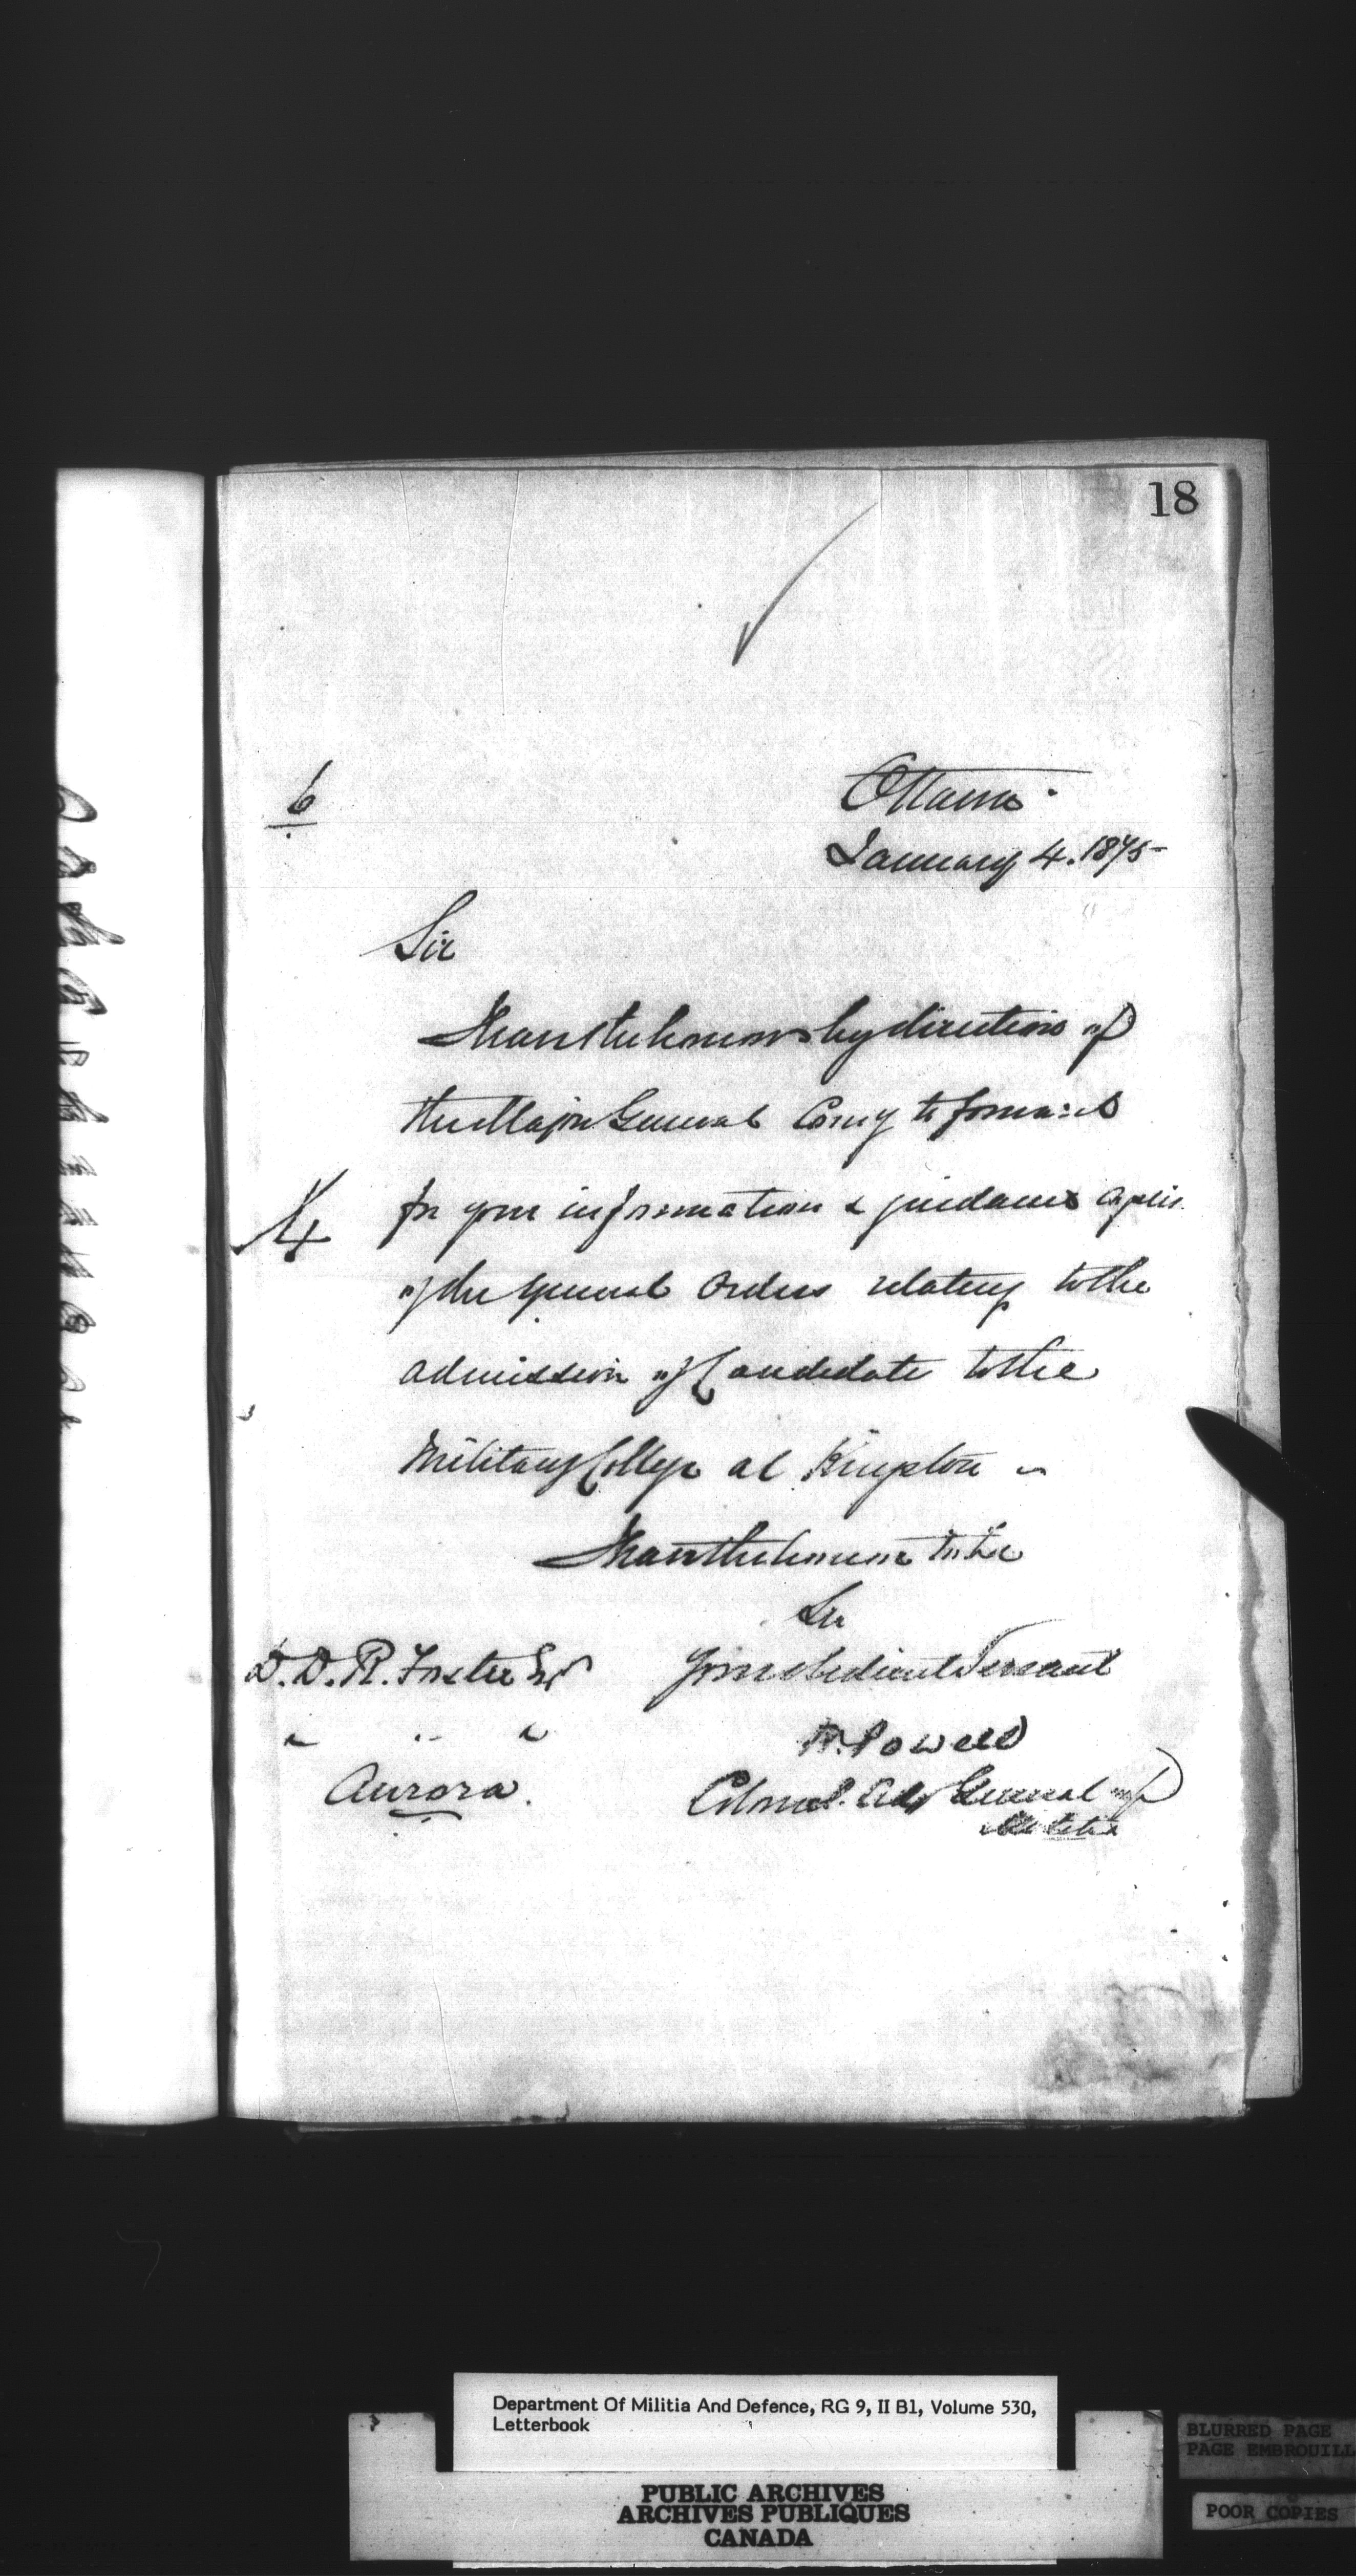 18
6
Ottawa
January 4. 1875
Sir
I have the honor by direction of
the Major General Comg to forward
for your information & guidance copies
4
of the General Orders relating to the
admission of Candidate to the
Military College at Kingston
I have the honor to be
Sir
Your obedient Servant
D. D. R. Foster Esq
" " "
W. Powell
Aurora.
Colonel. Adj General of
Militia
Department Of Militia And Defence, RG 9, II B1, Volume 530,
Letterbook
PUBLIC ARCHIVES
ARCHIVES PUBLIQUES
CANADA
BLURRED PAGE
PAGE EMBROUILL
POOR COPIES